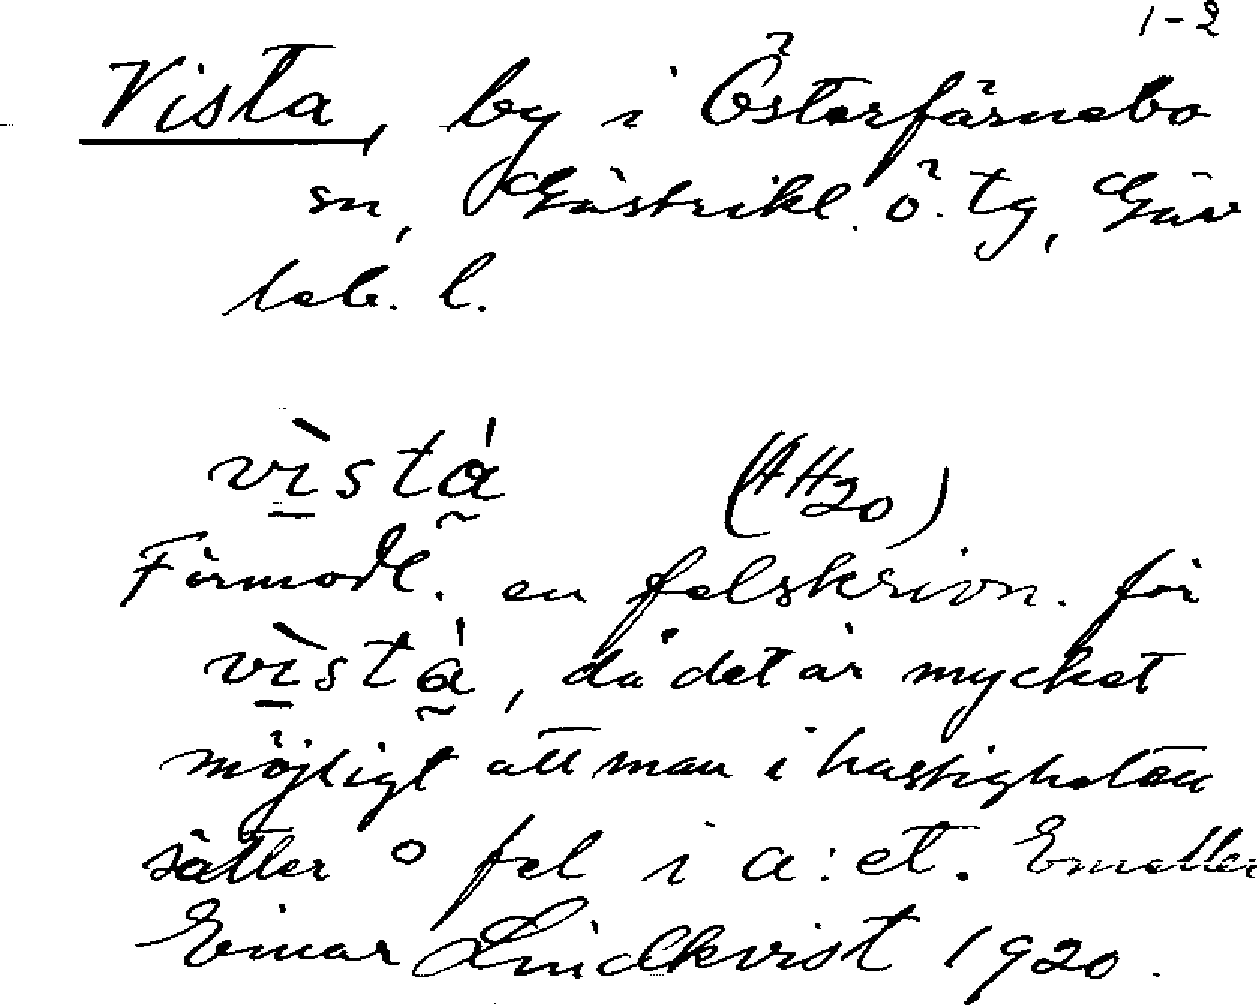 1-2
Vista, by i Österfärnebo
sn, Gästrikl. ö. tg, Gäv
leb. l.
vìstá (HH20)
Förmodl. en felskrivn. för
vìstá, då det är mycket
möjligt att man i hastigheten
sätter o fel i a:et. Emeller
Einar Lindkvist 1920.